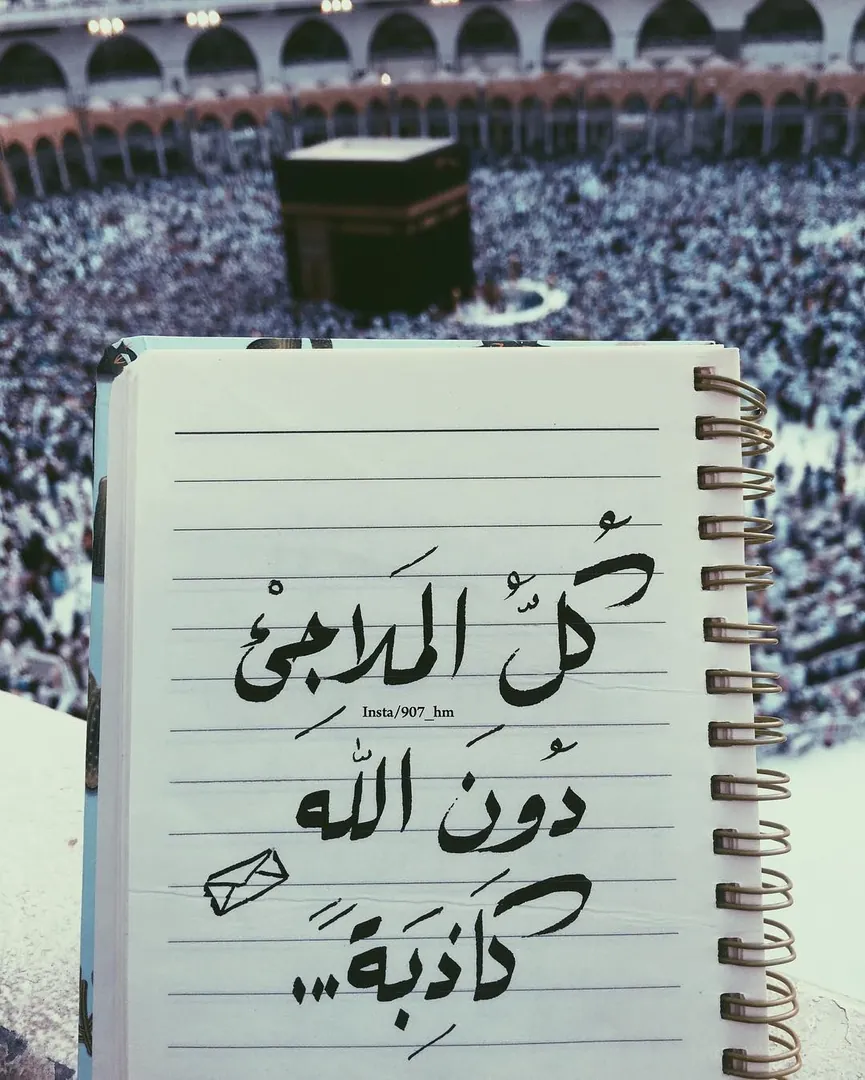 كُلُّ المَلاجِئْ
Insta/907_hm
دُونَ اللّٰه
كَاذِبَةً...